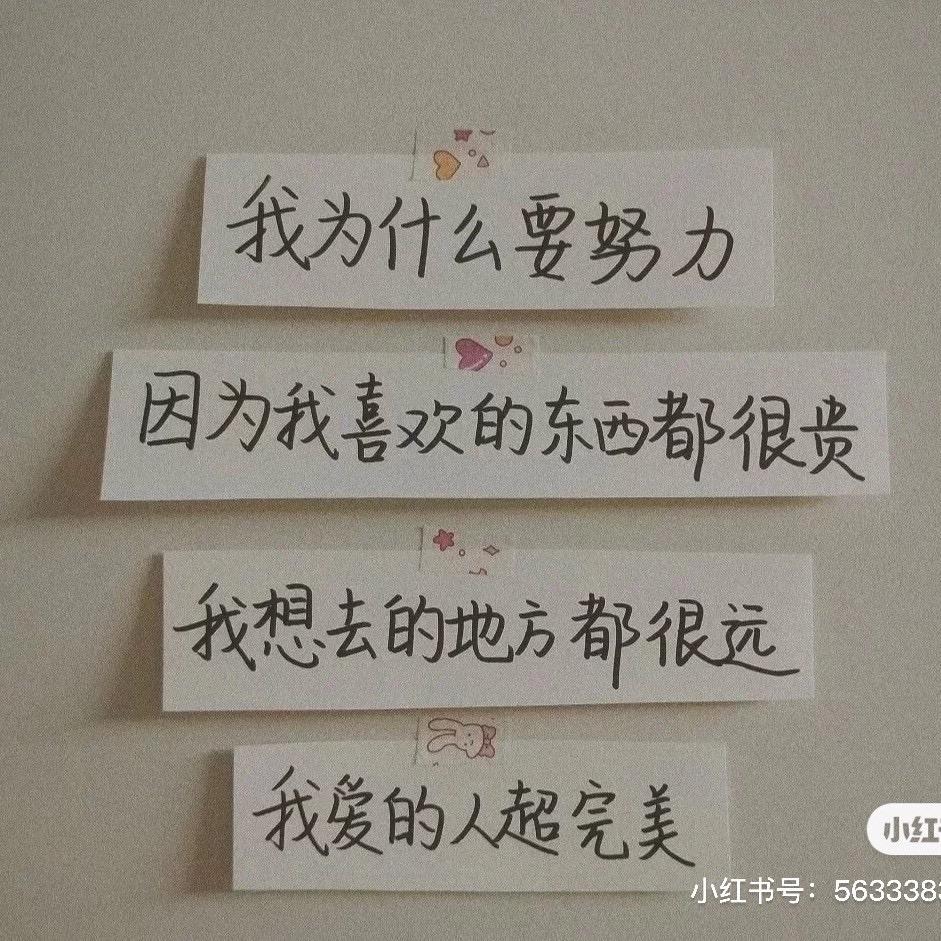 我为什么要努力
因为我喜欢的东西都很贵
我想去的地方都很远
我爱的人超完美
小红
小红书号：5633383